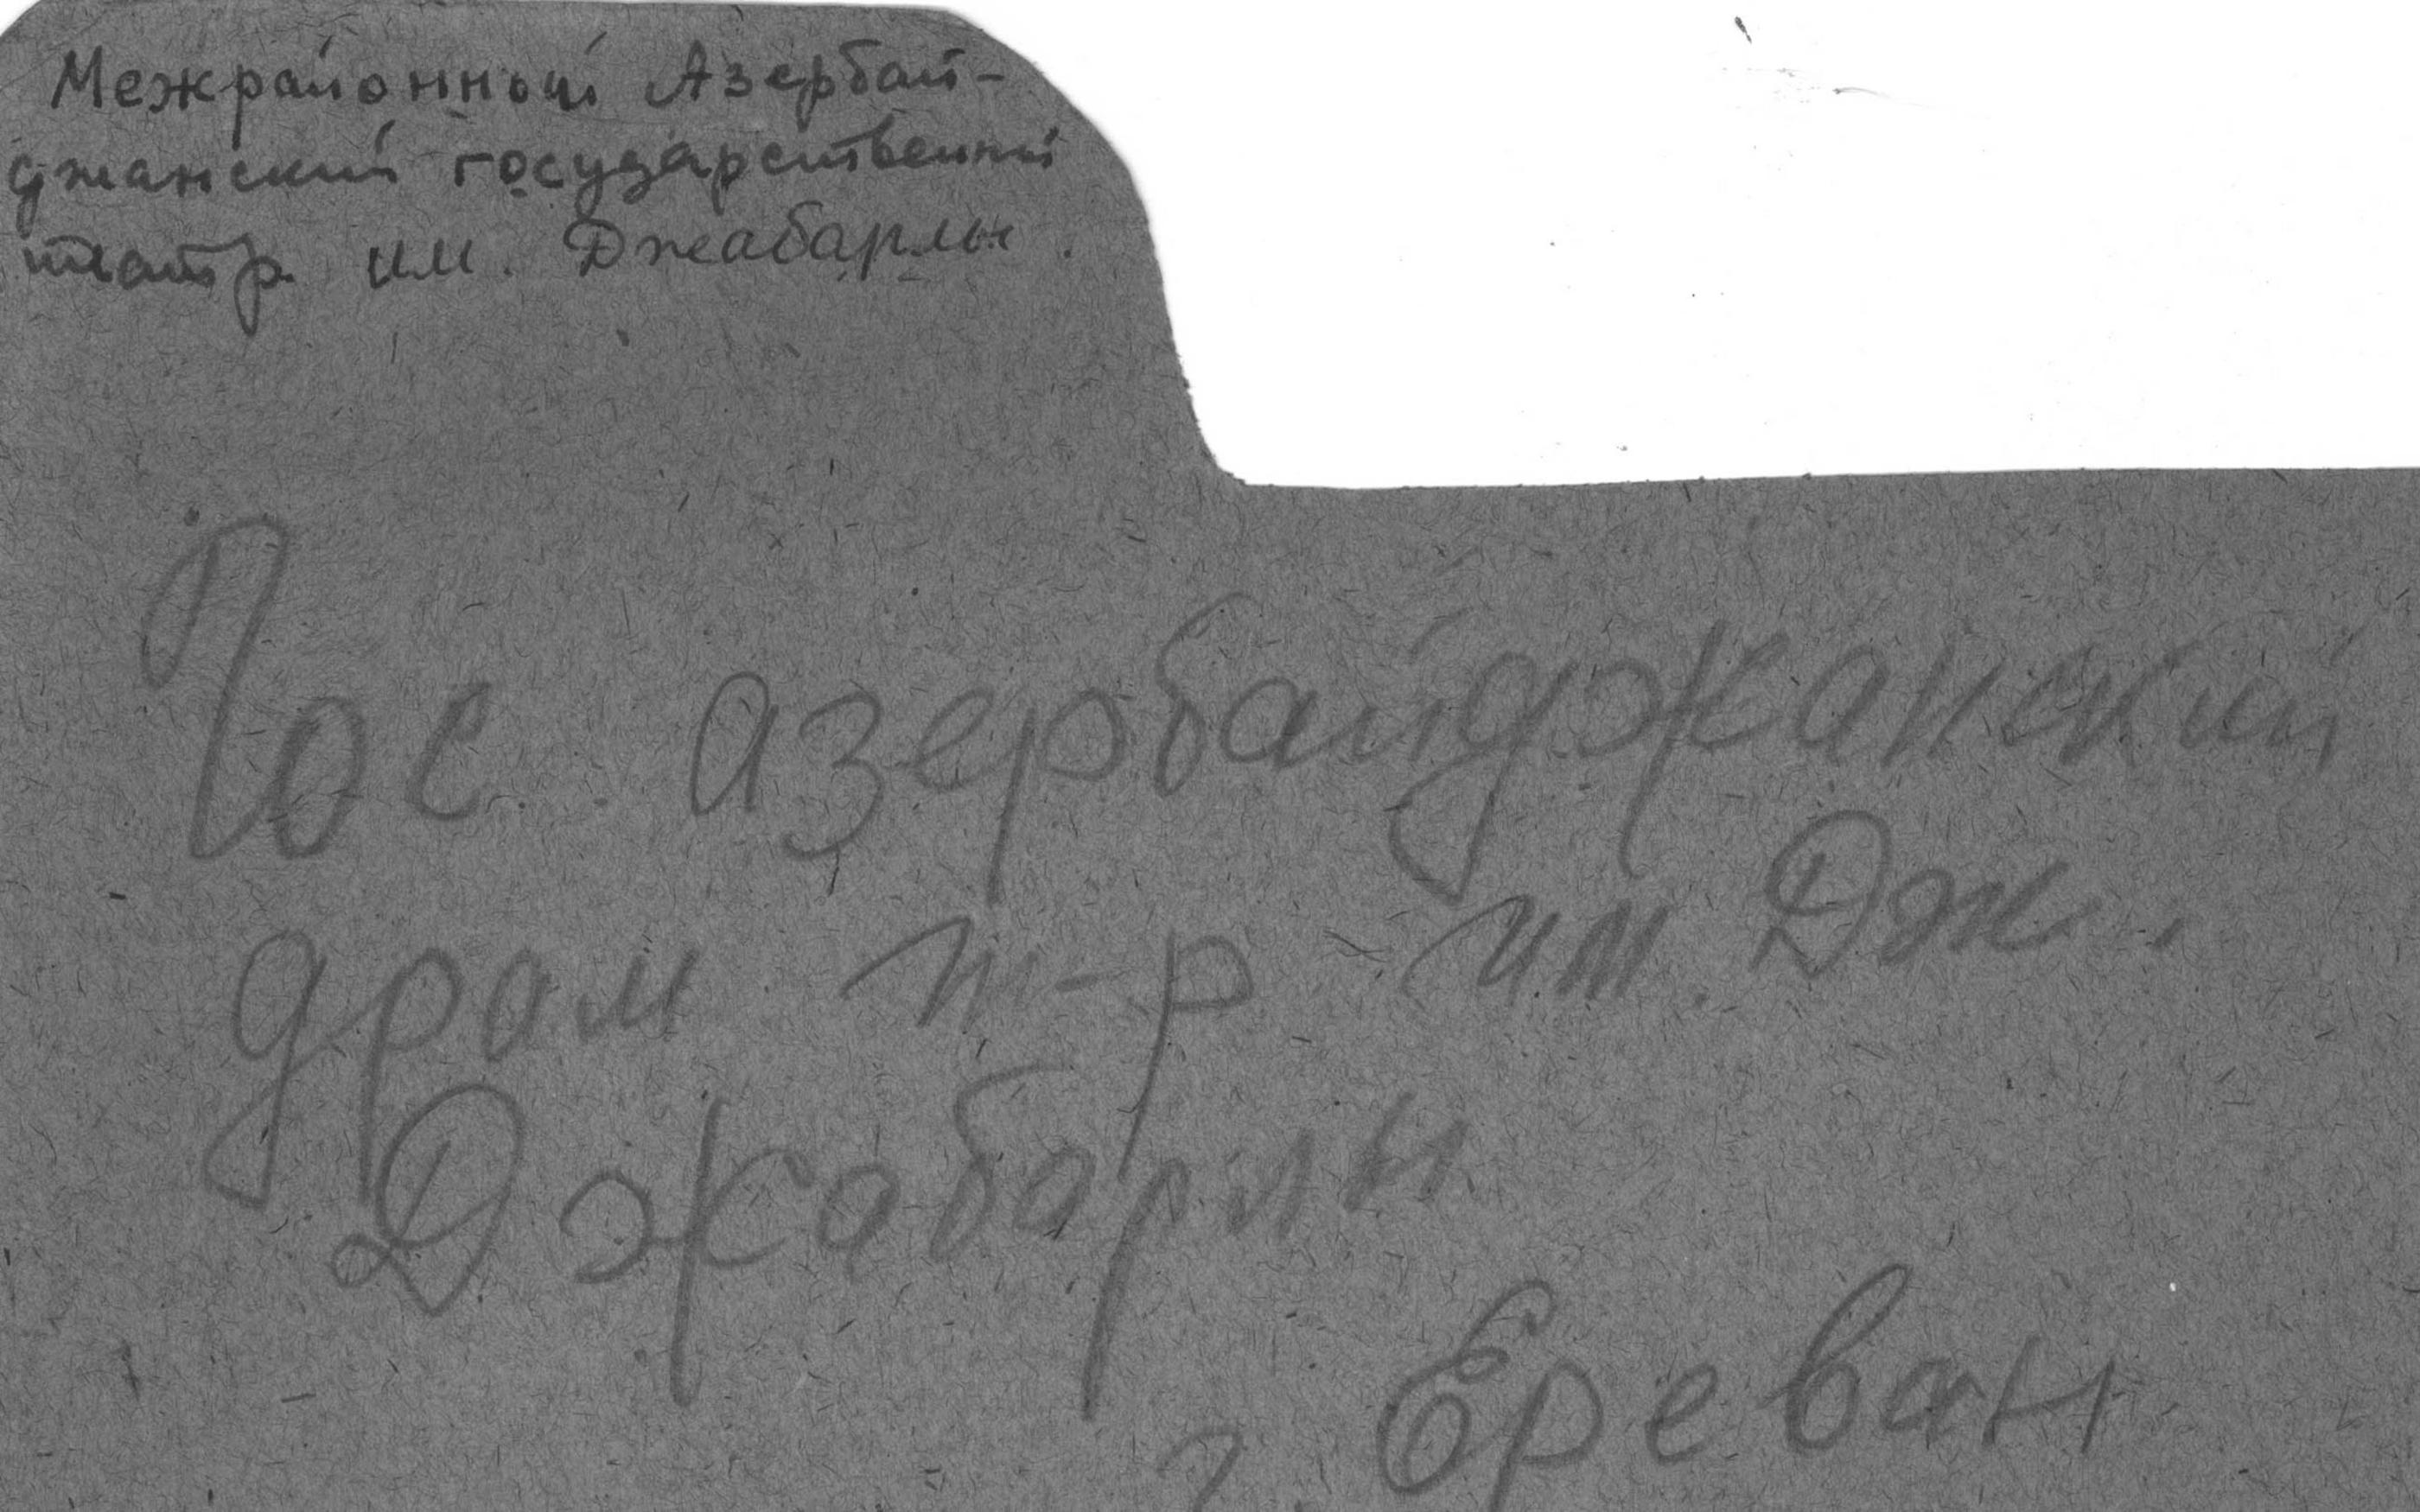 Межрайонный Азербай-
джанский государственный
театр им. Джабарлы.
Гос. азербайджанский
драм т-р им. Дж.
Джабарлы
г. Ереван